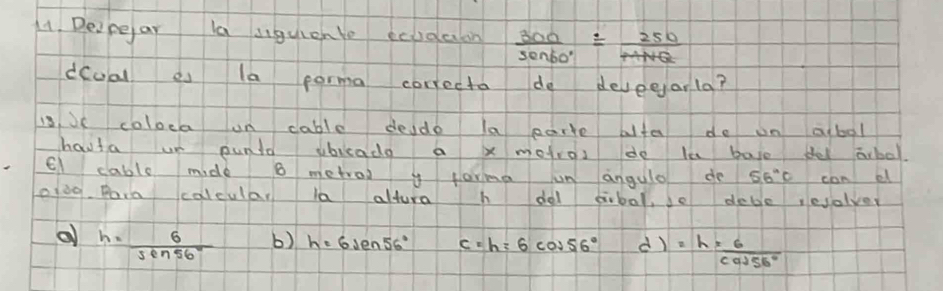 11. Despejar la siguiente ecuación 300/sen60° = 250/
dCual es la forma correcta de despejarla?
13. Se coloca un cable desde la parte alta de un arbol
hasta un punto ubicado a x metros de la base del árbol.
El cable mide 6 metros y forma un ángulo de 56°C con el
piso. Para calcular la altura h del árbol, se debe resolver
a) h = 6/sen56° b) h = 6 sen56° c = h = 6 cos56° d) = h = 6/cos56°